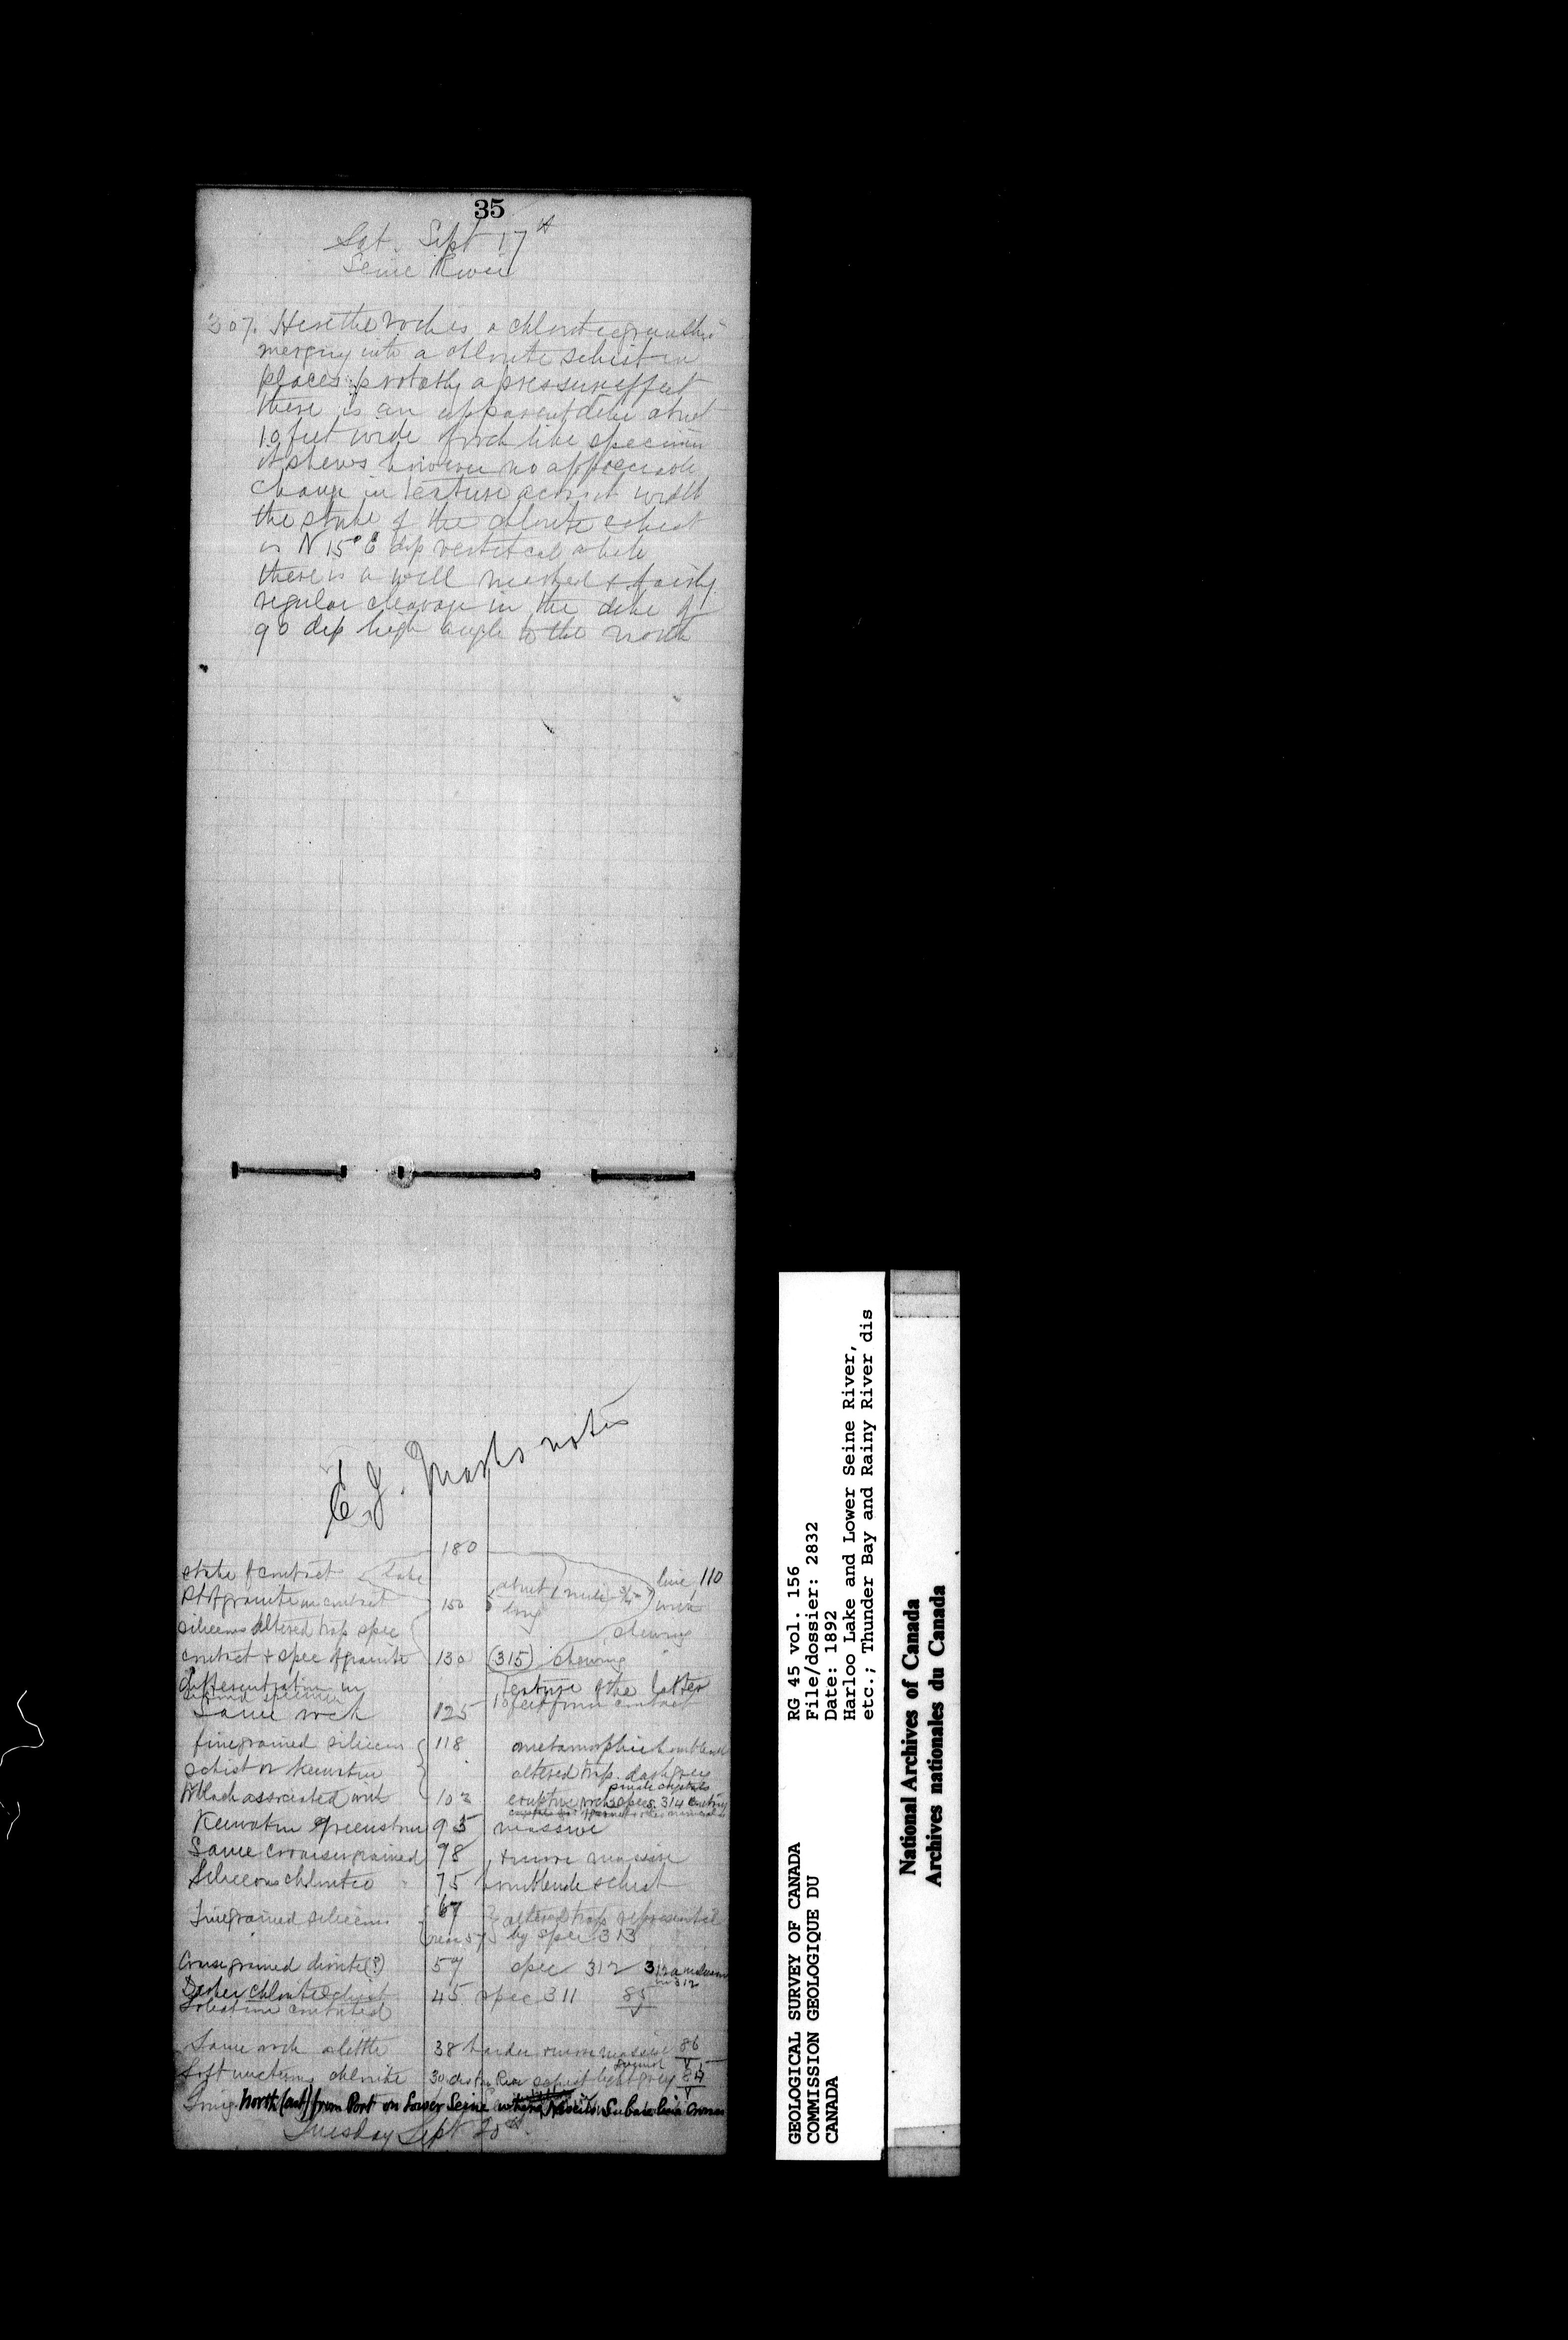 35
Sat. Sept 17th
Seine River
307. Here the rock is a chlorite
merging into a chlorite schist in
places probably a pressure effect
there is an apparent dike about
10 feet wide of rock like specimen
it shews however no appreciable
change in texture across it width
the strike of the chlorite schist
is N 15° E dip vertical while
there is a well marked & fairly
regular cleavage in the dike of
90 dip high angle to the north
E.J. notes
180
strike of contact lake line 110
of granite in contact 150 about 1 mile long
siliceous altered trap spec shewing
contact & spec of granite 130 (315) shewing
in texture of the latter
second specimen
Same rock 125 10 feet from contact
fine grained siliceous 118 metamorphic
schist or Keewatin altered trap. dark grey
Black associated with 102 eruptive rock spec. 314
Keewatin greenstone 95 massive
Same coarser grained 98 & more massive
Siliceous chlorite 75 hornblende schist
Fine grained siliceous 67 altered trap represented
near 57 by spec 313
Coarse grained diorite (?) 57 spec 312
Darker chlorite schist 45 spec 311 85
foliation contorted
Same rock a little 38 harder more massive 86
Soft chlorite 30 schist light grey
Going North (ast) from Port on Lower Seine where
Tuesday Sept 20th
GEOLOGICAL SURVEY OF CANADA
COMMISSION GEOLOGIQUE DU
CANADA
RG 45 vol. 156
File/dossier: 2832
Date: 1892
Harloo Lake and Lower Seine River,
etc.; Thunder Bay and Rainy River dis
National Archives of Canada
Archives nationales du Canada